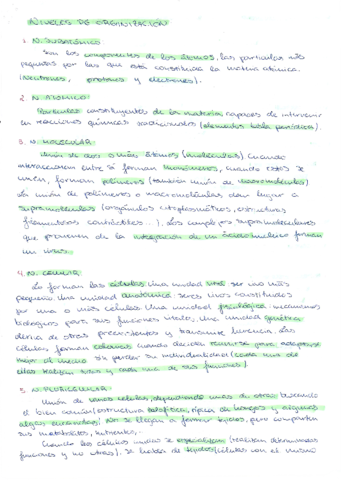 NIVELES DE ORGANIZACIÓN
1. N. SUBATÓMICO
Son los componentes de los átomos, las partículas más
pequeñas por las que está constituida la materia atómica.
(Neutrones, protones y electrones).
2. N. ATÓMICO
Partículas constituyentes de la materia capaces de intervenir
en reacciones químicas (elementos tabla periódica).
3. N. MOLECULAR
Unión de dos o más átomos (moléculas) cuando
interaccionan entre sí forman monómeros, cuando estos se
unen, forman polímeros (también unión de macromoléculas)
La unión de polímeros o macromoléculas dan lugar a
supramoléculas (orgánulos citoplasmáticos, estructuras
filamentosas contráctiles...). Los complejos supramoleculares
que provienen de la integración de un ácido nucleico forman
un virus.
4. N. CELULAR
La forman las células. Una unidad vital ser vivo más
pequeño. Una unidad anatómica seres vivos constituidos
por una o más células. Una unidad fisiológica: mecanismos
biológicos para sus funciones vitales. Una unidad genética
deriva de otras preexistentes y transmite herencia. Las
células forman colonias cuando deciden reunirse para adaptarse
mejor al medio sin perder su individualidad (cada una de
ellas trabajan solas y cada una de sus funciones)
5. N. PLURICELULAR
Unión de varias células, dependiendo unas de otras buscando
el bien común (estructura talofítica, típica de hongos y algunas
algas). No se llegan a formar tejidos, pero comparten
sus metabolitos, nutrientes...
Cuando las células unidas se especializan (realizan determinadas
funciones y no otras). Se habla de tejidos (células con el mismo